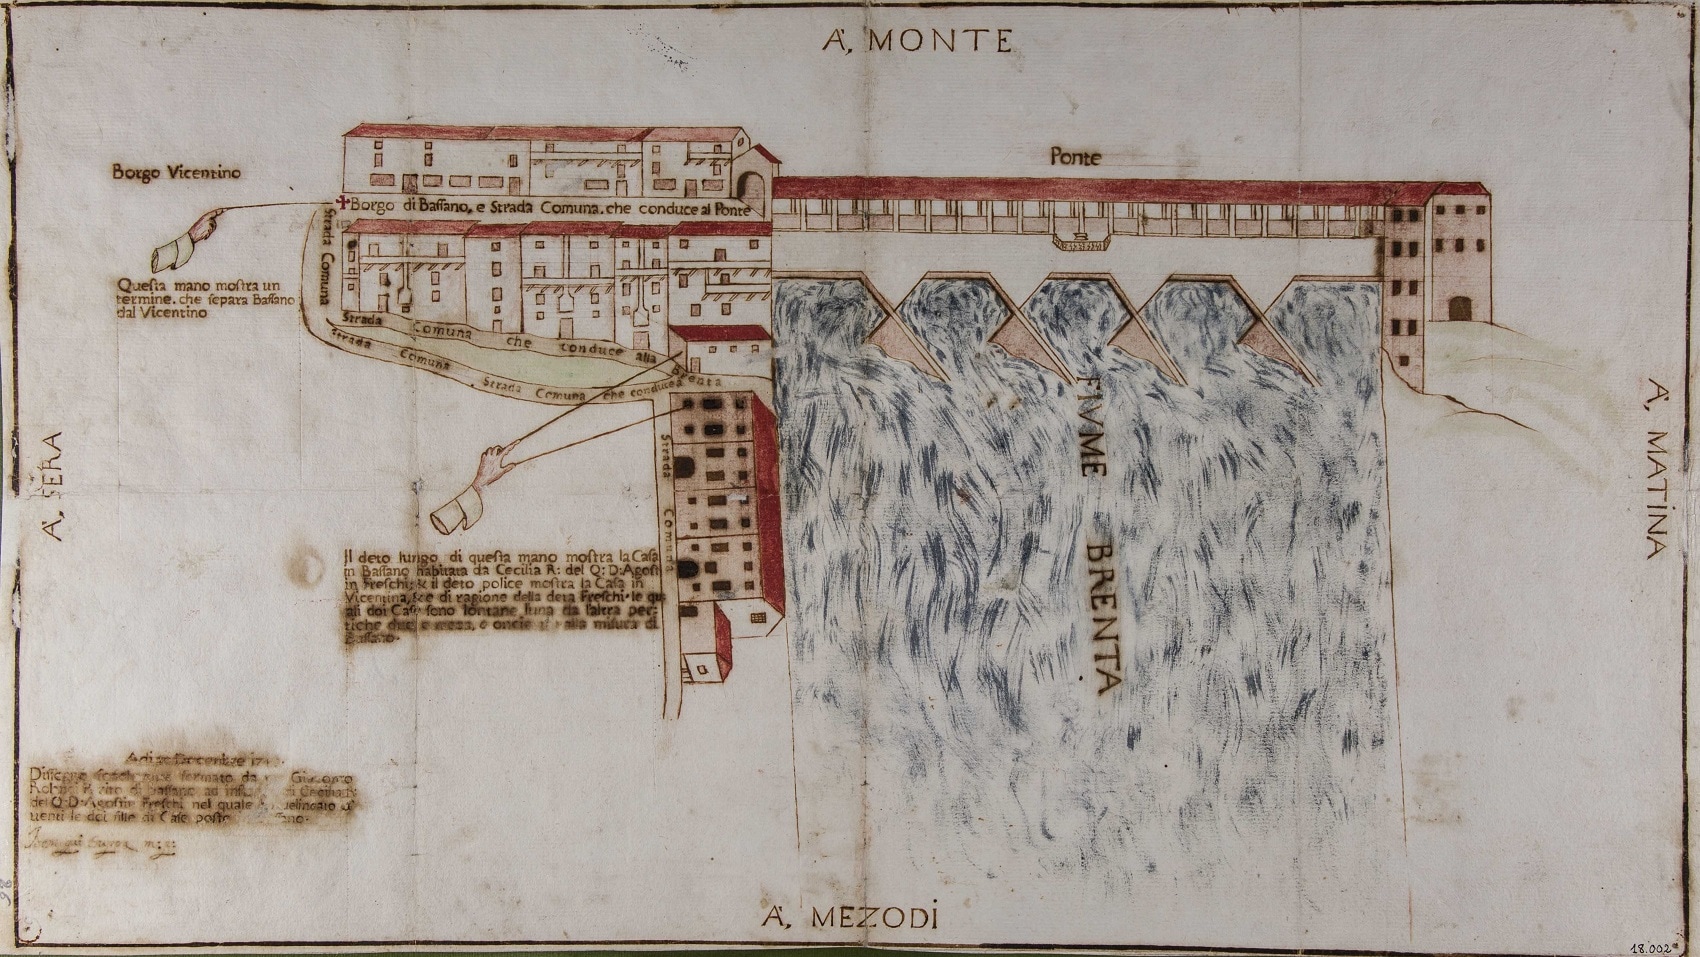 A, MONTE
Ponte
Borgo Vicentino
Borgo di Bassano, e Strada Comuna. che conduce al Ponte
Strada Comuna
Questa mano mostra un
termine. che separa Bassano
dal Vicentino
Strada Comuna che conduce alla Brenta
Strada Comuna Strada Comuna che conduce
Strada Comuna
FIVME BRENTA
A, SERA
A, MATINA
Il deto lungo di questa mano mostra la Casa
in Bassano habitata da Cecilia R: del Q: D: Agost
in Freschi; & il deto police mostra la Casa in
Vicentina, & e di ragione della deta Freschi. le qu
ali doi Case sono lontane luna da l'altra per:
tiche due e meza, e oncie alla misura di
Bassano.
Adi Decembre
formato da Giacomo
di Bassano ad di Cecilia R:
del Q: D: Agostin Freschi nel quale
di Case poste
A, MEZODI
18.002